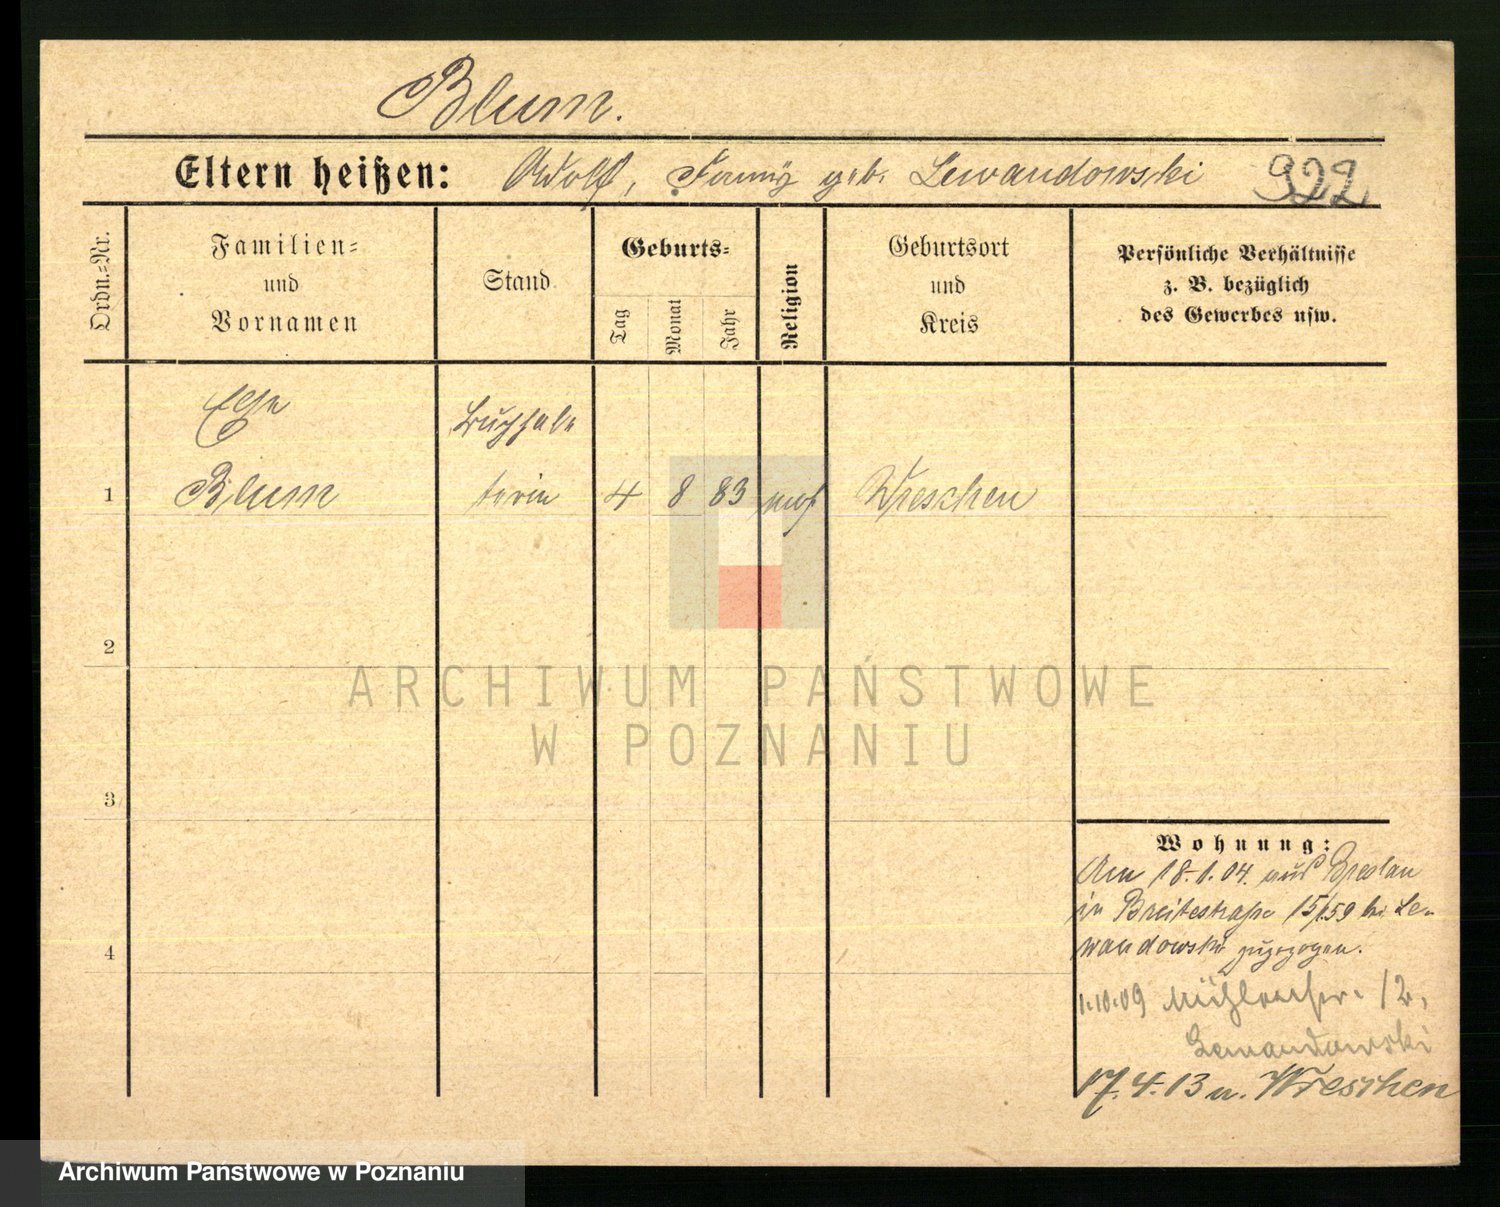 Blum.
Eltern heißen: Adolf, Fanny geb. Lewandowski 922
Ordn.=Nr.
Familien=
und
Vornamen
Stand
Geburts=
Tag
Monat
Jahr
Religion
Geburtsort
und
Kreis
Persönliche Verhältnisse
z. B. bezüglich
des Gewerbes usw.
Else Buchhal
1 Blum terin 4 8 83 mos Wreschen
2
ARCHIWUM PAŃSTWOWE
W POZNANIU
3
Wohnung:
Am 18.1.04. aus Breslau
in Breitestraße 15/159 bei Le-
4 wandowski zugezogen.
1.10.09 12,
Lewandowski
17.4.13 n. Wreschen
Archiwum Państwowe w Poznaniu